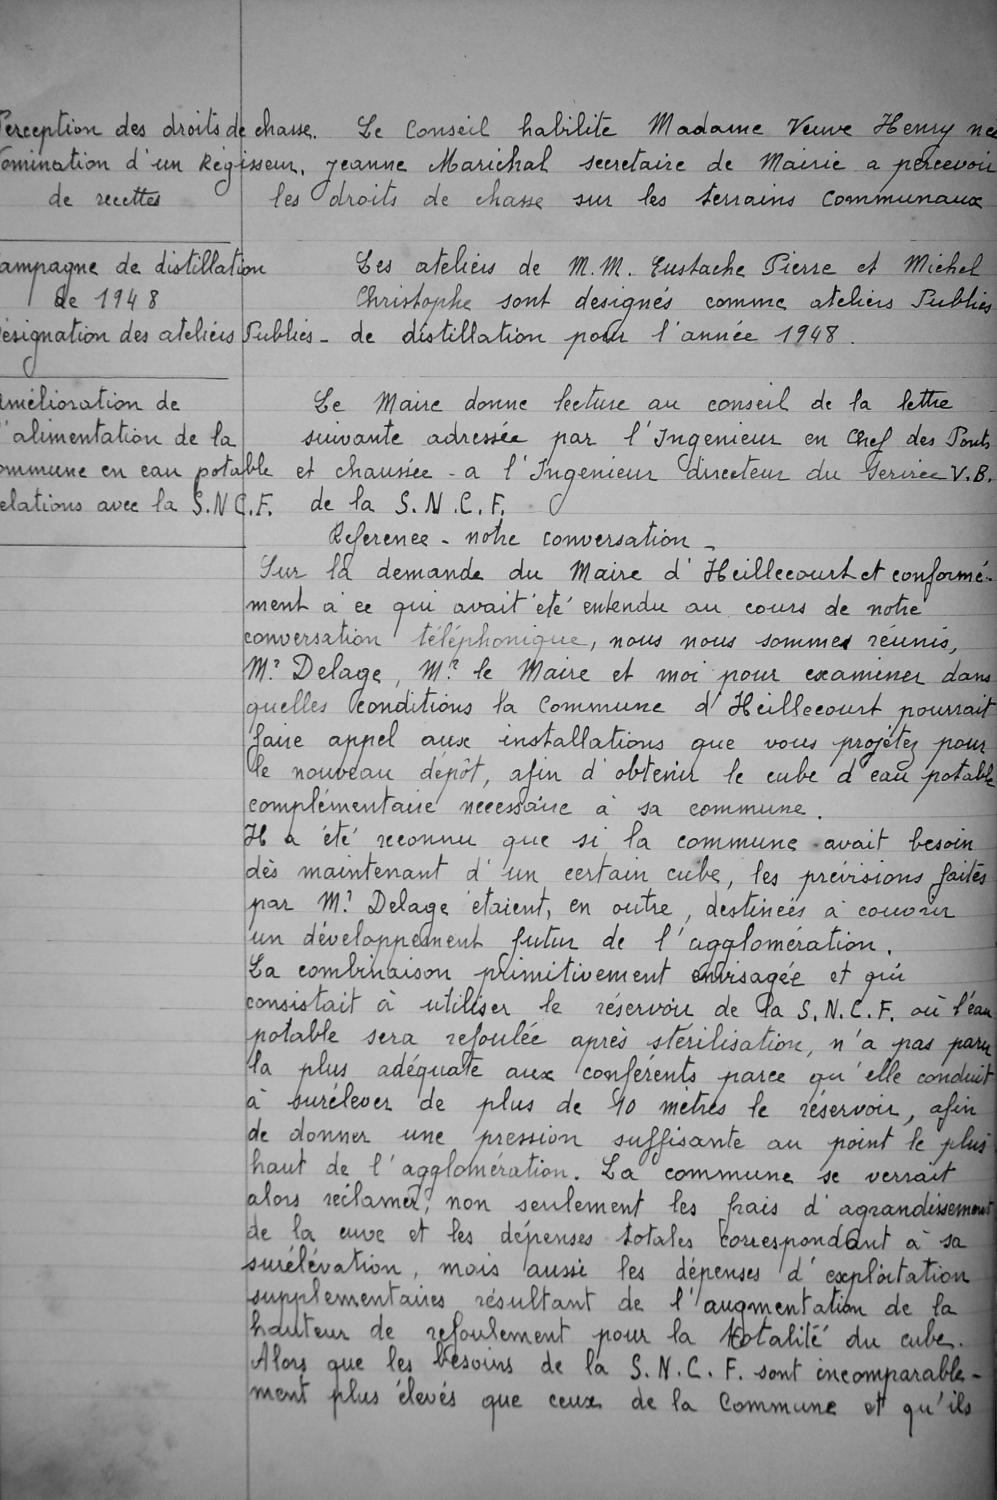 Perception des droits de chasse.
Nomination d'un Régisseur.
de recettes
Le Conseil habilite Madame Veuve Henry née
Jeanne Marichal secretaire de Mairie a percevoir
les droits de chasse sur les terrains Communaux
Campagne de distillation
de 1948
Désignation des ateliérs Publics -
Les ateliérs de M.M. Eustache Pierre et Michel
Christophe sont designés comme ateliérs Publics
de distillation pour l'année 1948.
Amélioration de
l'alimentation de la
Commune en eau potable
relations avec la S.N.C.F.
Le Maire donne lecture au conseil de la lettre
suivante adressée par l'Ingenieur en Chef des Ponts
et chaussée - a l'Ingenieur directeur du Service V.B.
de la S.N.C.F.
Reference - notre conversation -
Sur la demande du Maire d'Heillecourt et conformé-
ment à ce qui avait été entendu au cours de notre
conversation téléphonique, nous nous sommes réunis,
Mr Delage, Mr le Maire et moi pour examiner dans
quelles conditions la Commune d'Heillecourt pourrait
faire appel aux installations que vous projetez pour
le nouveau dépôt, afin d'obtenir le cube d'eau potable
complémentaire necessaire à sa commune.
Il a été reconnu que si la commune avait besoin
dès maintenant d'un certain cube, les prévisions faites
par Mr Delage étaient, en outre, destinées à couvrir
un développement futur de l'agglomération.
La combinaison primitivement envisagée et qui
consistait à utiliser le réservoir de la S.N.C.F. où l'eau
potable sera refoulée après stérilisation, n'a pas paru
la plus adéquate aux conférents parce qu'elle conduit
à surélever de plus de 10 mètres le réservoir, afin
de donner une pression suffisante au point le plus
haut de l'agglomération. La commune se verrait
alors réclamer, non seulement les frais d'agrandissement
de la cuve et les dépenses totales correspondant à sa
surélévation, mais aussi les dépenses d'exploitation
supplementaires résultant de l'augmentation de la
hauteur de refoulement pour la totalité du cube.
Alors que les besoins de la S.N.C.F. sont incomparable-
ment plus élevés que ceux de la Commune et qu'ils